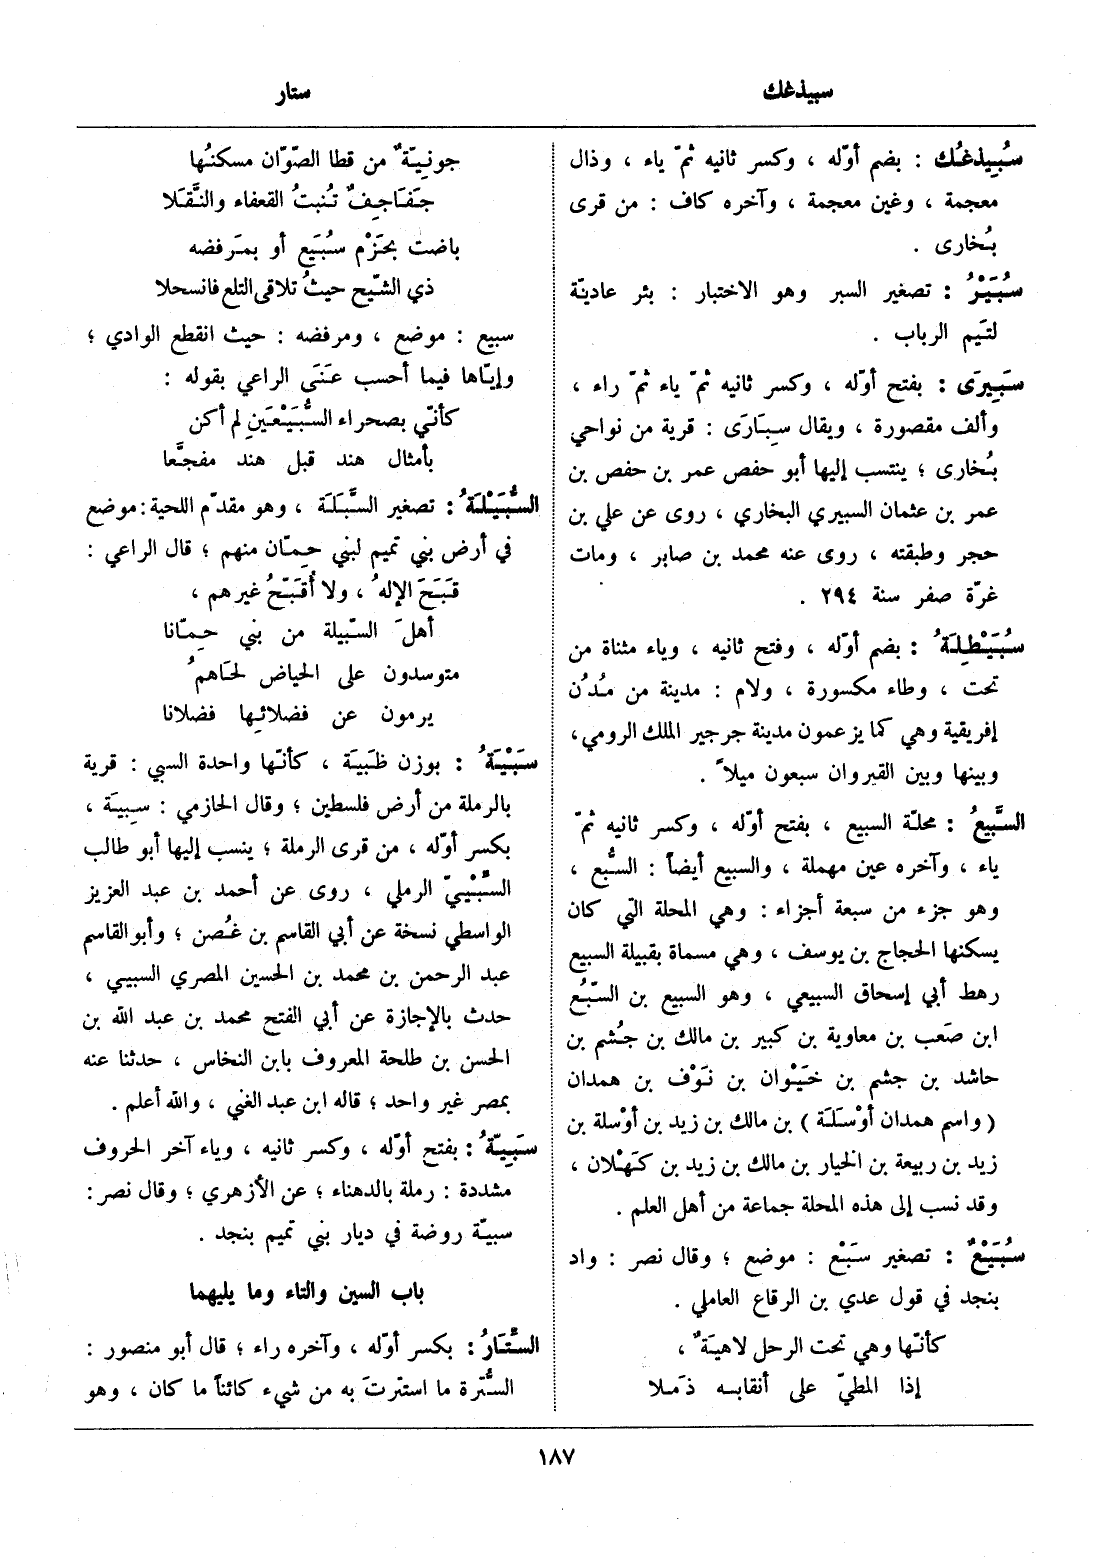 سبيذغك
ستار
سُبِيذغُك : بضم أوّله ، وكسر ثانيه ثمّ ياء ، وذال
معجمة ، وغين معجمة ، وآخره كاف : من قرى
بُخارى .
سُبَيْرُ : تصغير السبر وهو الاختبار : بئر عاديّة
لتَيم الرباب .
سَبِيرَى : بفتح أوّله ، وكسر ثانيه ثمّ ياء ثمّ راء ،
وألف مقصورة ، ويقال سِبَارَى : قرية من نواحي
بُخارى ؛ ينتسب إليها أبو حفص عمر بن حفص بن
عمر بن عثمان السبيري البخاري ، روى عن علي بن
حجر وطبقته ، روى عنه محمد بن صابر ، ومات
غرّة صفر سنة ٢٩٤ .
سُبَيْطِلَةُ : بضم أوّله ، وفتح ثانيه ، وياء مثناة من
تحت ، وطاء مكسورة ، ولام : مدينة من مُدُن
إفريقية وهي كما يزعمون مدينة جرجير الملك الرومي ،
وبينها وبين القيروان سبعون ميلاً .
السَّبِيعُ : محلة السبيع ، بفتح أوّله ، وكسر ثانيه ثمّ
ياء ، وآخره عين مهملة ، والسبيع أيضاً : السُّبع ،
وهو جزء من سبعة أجزاء : وهي المحلة التي كان
يسكنها الحجاج بن يوسف ، وهي مسماة بقبيلة السبيع
رهط أبي إسحاق السبيعي ، وهو السبيع بن السّبُع
ابن صَعب بن معاوية بن كبير بن مالك بن جُشم بن
حاشد بن جشم بن خَيْوان بن نَوْف بن همدان
( واسم همدان أَوْسَلَة ) بن مالك بن زيد بن أَوْسلة بن
زيد بن ربيعة بن الخيار بن مالك بن زيد بن كَهْلان ،
وقد نسب إلى هذه المحلة جماعة من أهل العلم .
سُبَيْعٌ : تصغير سَبَعْ : موضع ؛ وقال نصر : واد
بنجد في قول عدي بن الرقاع العاملي .
كأنّها وهي تحت الرحل لاهيَةٌ ،
إذا المطيّ على أنقابه ذَمَلا
جونيّةٌ من قطا الصّوّان مسكنُها
جَفَاجِفٌ تُنبتُ القعفاء والنَّقَلا
باضت بحَزْم سُبَيع أو بمَرفضه
ذي الشّيح حيثُ تلاقى التلع فانسحلا
سبيع : موضع ، ومرفضه : حيث انقطع الوادي ؛
وإيّاها فيما أحسب عَنَى الراعي بقوله :
كأنّي بصحراء السُّبَيْعَينِ لم أكن
بأمثال هند قبل هند مفجَّعا
السُّبَيْلَةُ : تصغير السَّبَلَة ، وهو مقدّم اللحية : موضع
في أرض بني تميم لبني حِمّان منهم ؛ قال الراعي :
قَبَحَ الإلهُ ، ولا أُقَبّحُ غيرهم ،
أهلَ السّبيلة من بني حِمّانا
متوسدون على الحياض لحَاهمُ
يرمون عن فضلائها فضلانا
سَبْيَةُ : بوزن ظَبيَة ، كأنّها واحدة السبي : قرية
بالرملة من أرض فلسطين ؛ وقال الحازمي : سِبيَة ،
بكسر أوّله ، من قرى الرملة ؛ ينسب إليها أبو طالب
السَّبْييّ الرملي ، روى عن أحمد بن عبد العزيز
الواسطي نسخة عن أبي القاسم بن غُصن ؛ وأبو القاسم
عبد الرحمن بن محمد بن الحسين المصري السبيي ،
حدث بالإجازة عن أبي الفتح محمد بن عبد الله بن
الحسن بن طلحة المعروف بابن النخاس ، حدثنا عنه
بمصر غير واحد ؛ قاله ابن عبد الغني ، والله أعلم .
سَبِيّةُ : بفتح أوّله ، وكسر ثانيه ، وياء آخر الحروف
مشددة : رملة بالدهناء ؛ عن الأزهري ؛ وقال نصر :
سبيّة روضة في ديار بني تميم بنجد .
باب السين والتاء وما يليهما
السِّتَارُ : بكسر أوّله ، وآخره راء ؛ قال أبو منصور :
السُّترة ما استترتَ به من شيء كائناً ما كان ، وهو
١٨٧